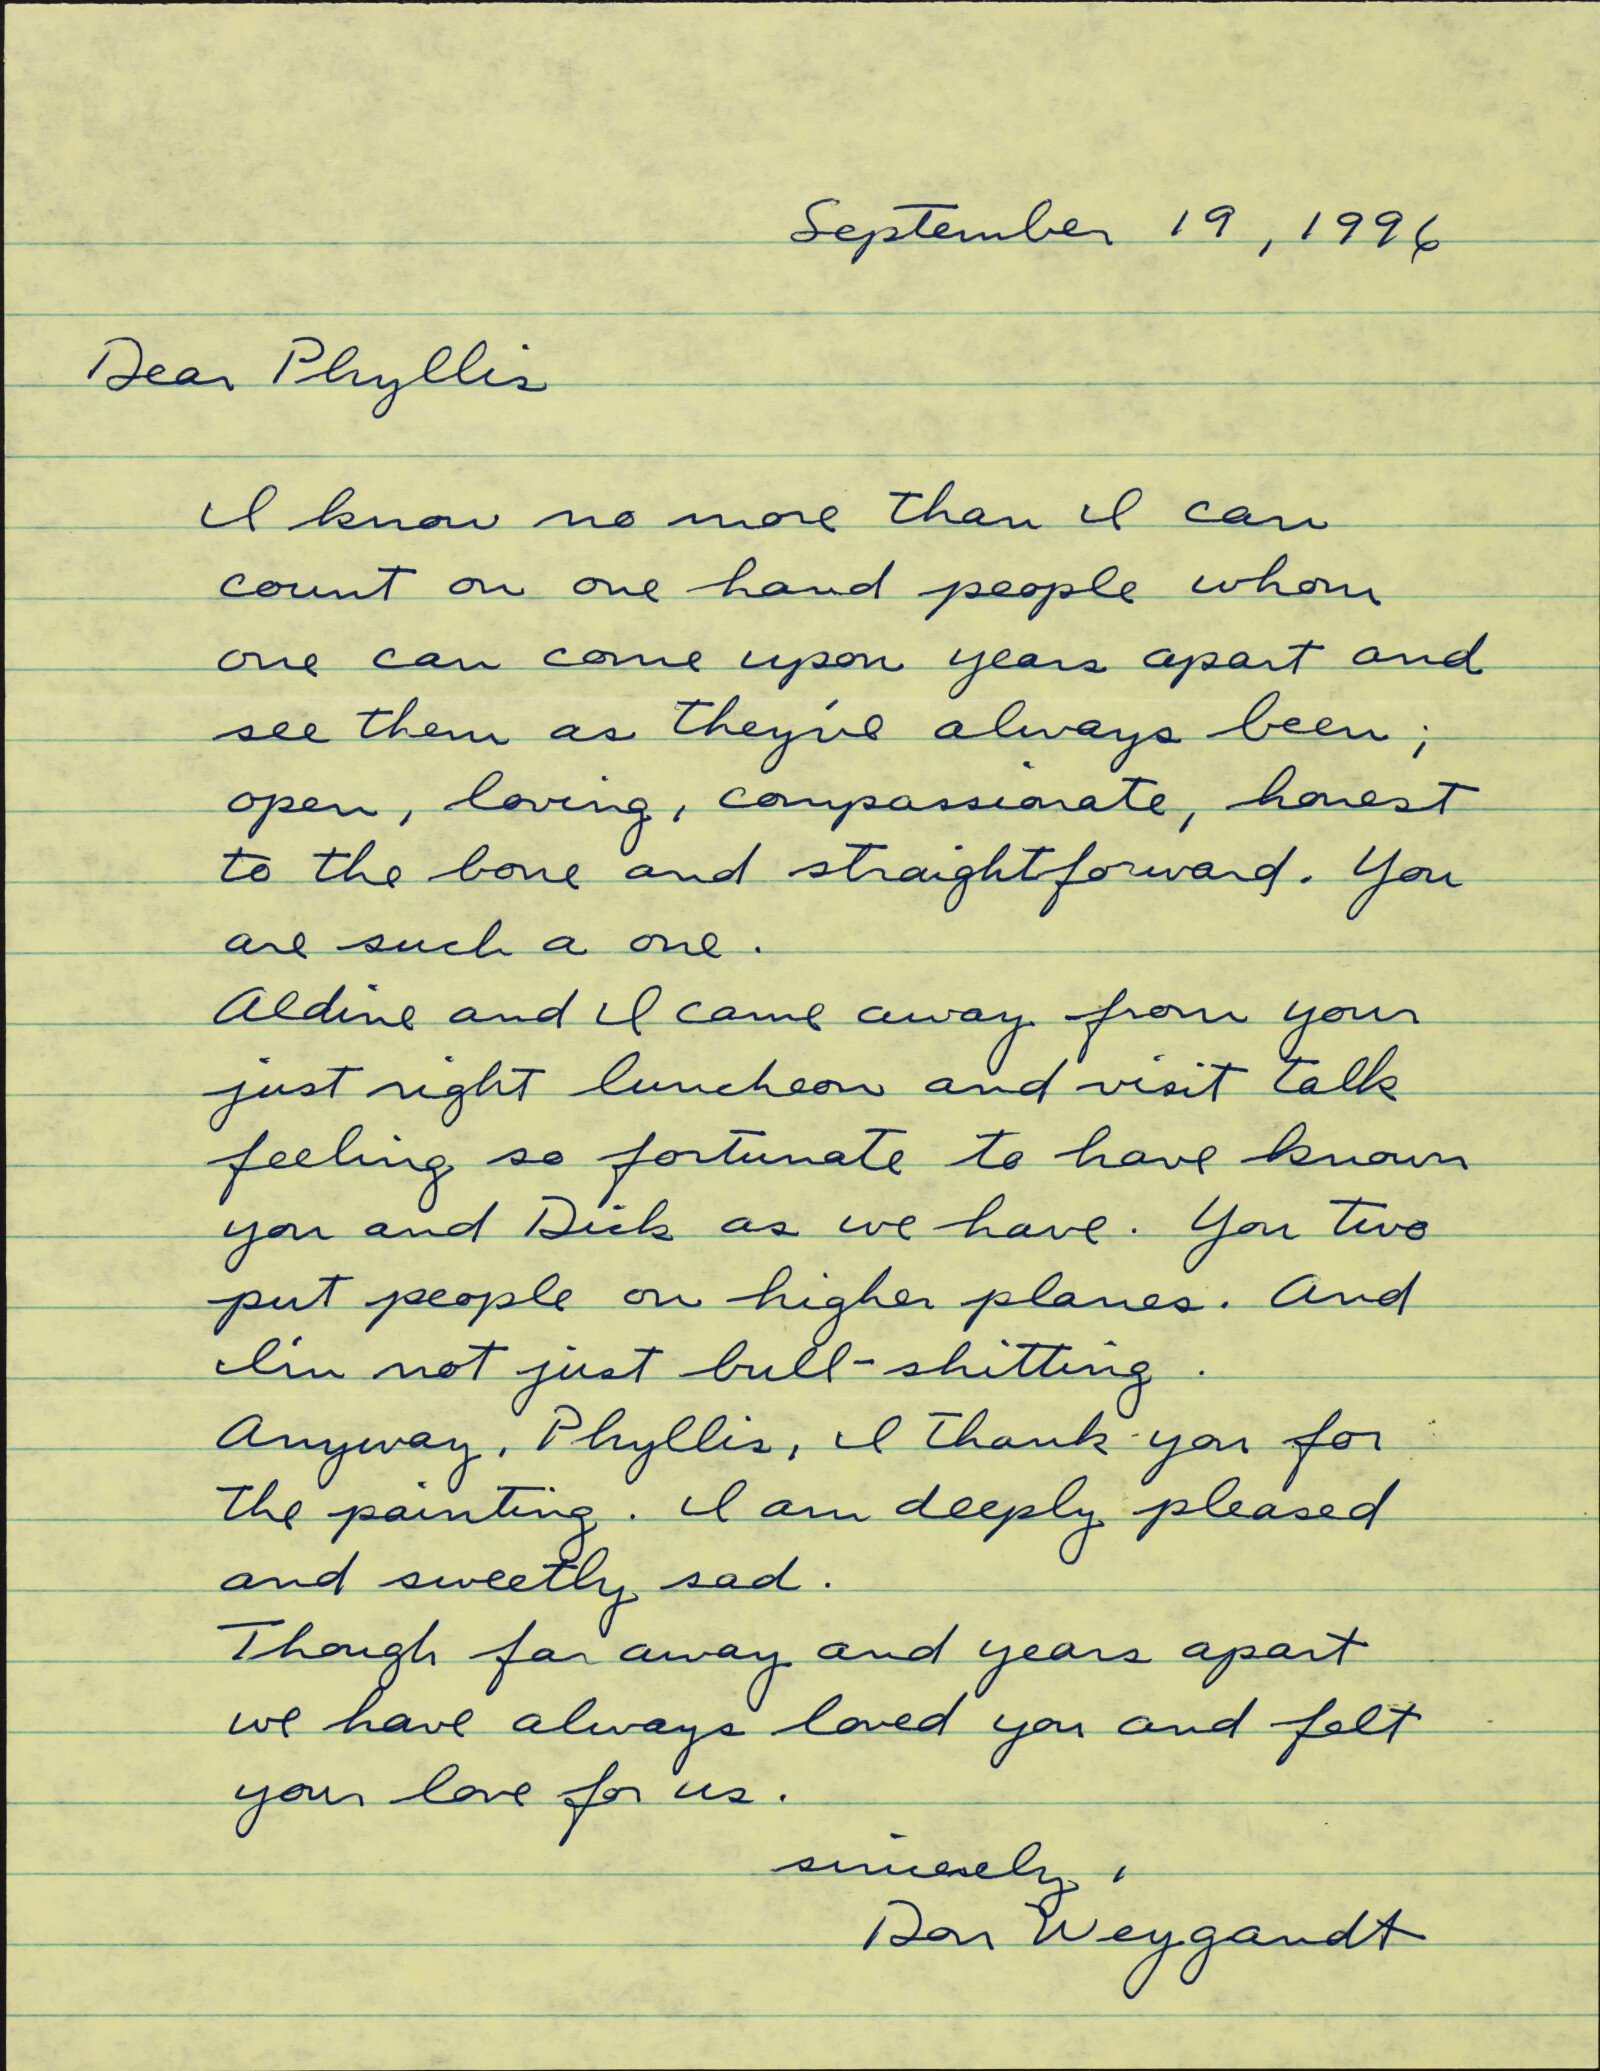 September 19, 1996
Dear Phyllis
I know no more than I can
count on one hand people whom
one can come upon years apart and
see them as they've always been;
open, loving, compassionate, honest
to the bone and straightforward. You
are such a one.
Aldine and I came away from your
just right luncheon and visit talk
feeling so fortunate to have known
you and Dick as we have. You two
put people on higher planes. And
I'm not just bull-shitting.
Anyway, Phyllis, I thank you for
the painting. I am deeply pleased
and sweetly sad.
Though far away and years apart
we have always loved you and felt
your love for us.
sincerely,
Don Weygandt